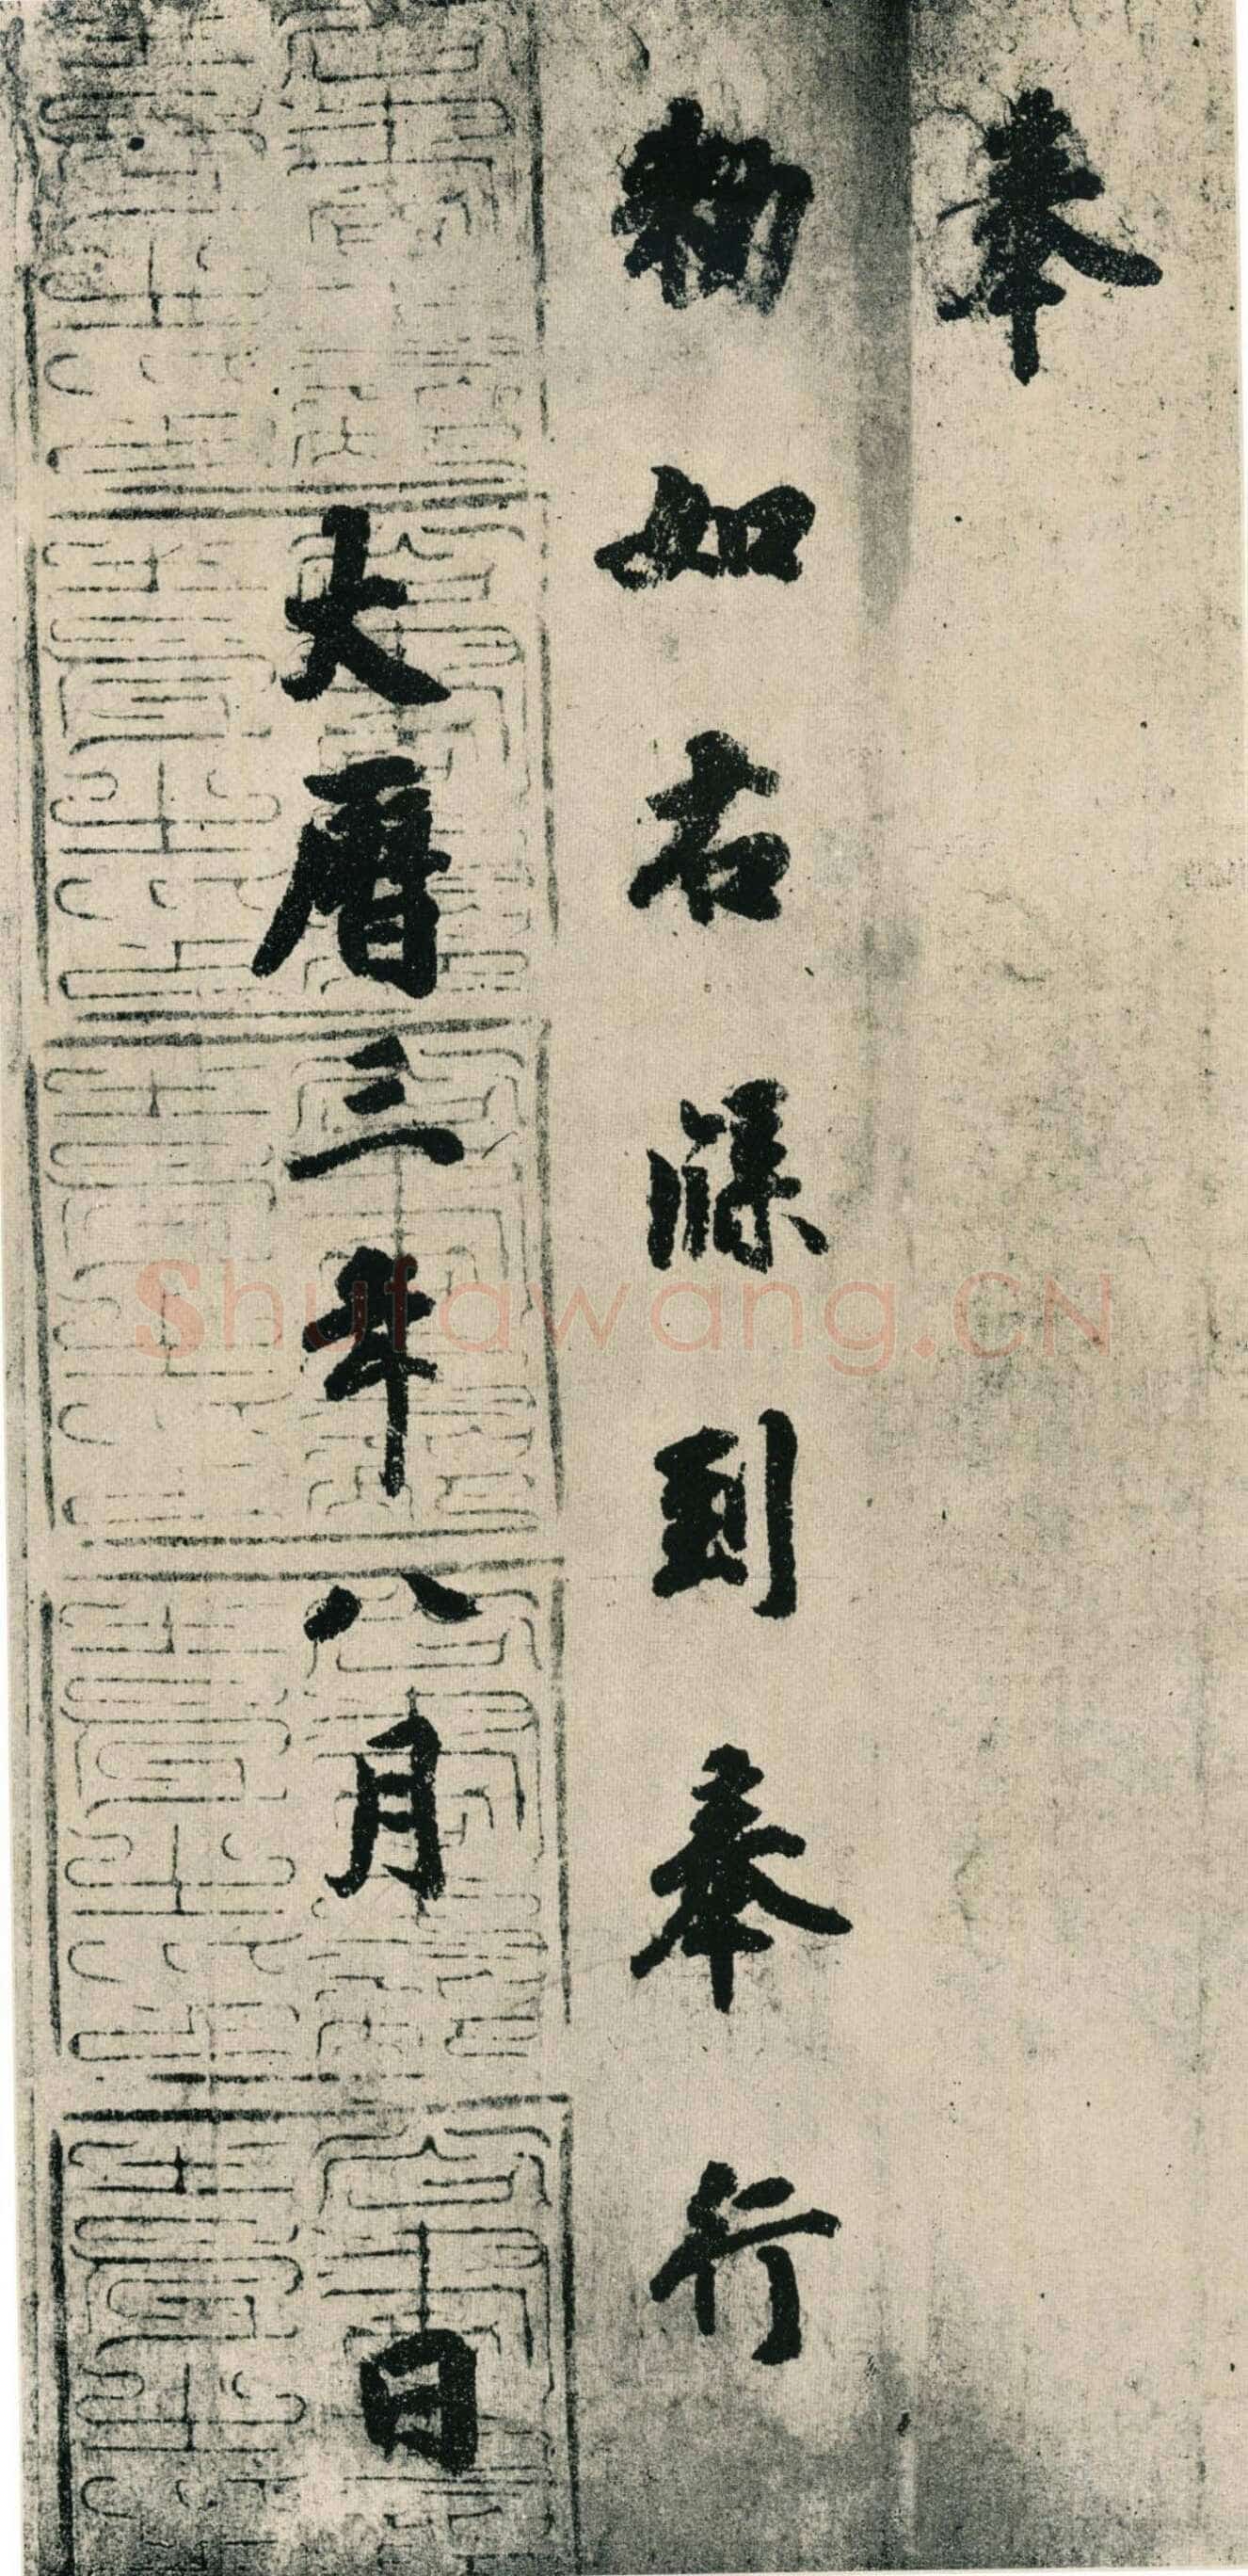 奉
勑如右牒到奉行
大曆三年八月 日
Shufawang.CN